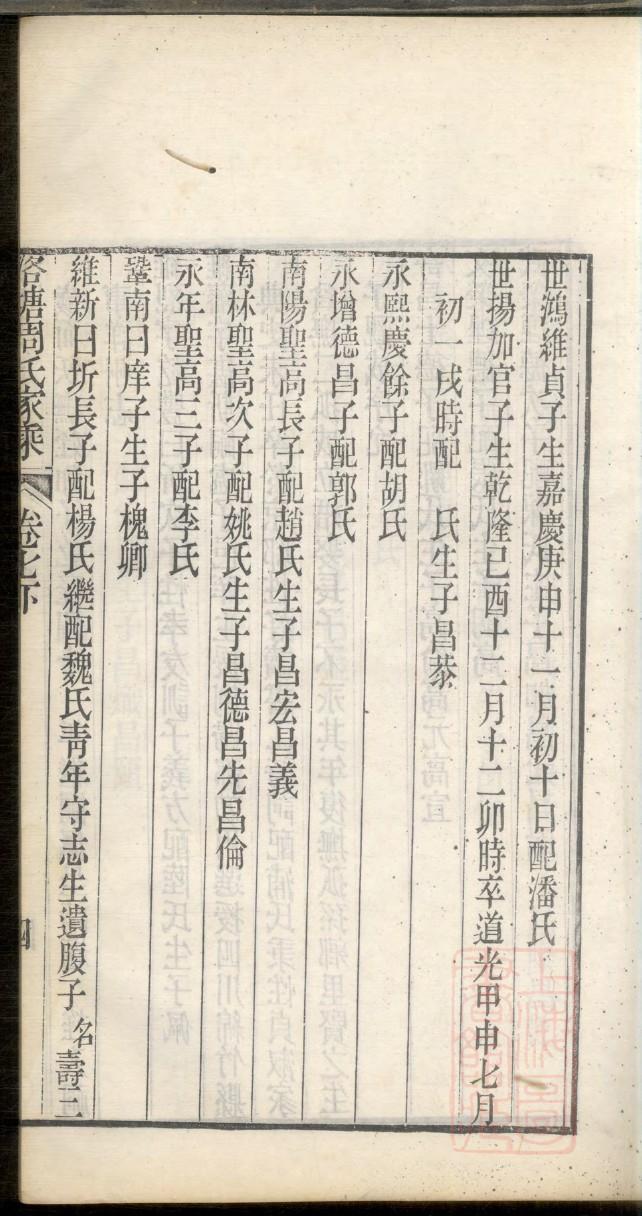 世鴻維貞子生嘉慶庚申十一月初十日配潘氏
世揚加官子生乾隆己酉十二月十二卯時卒道光甲申七月
初一戌時配　氏生子昌恭
永熙慶餘子配胡氏
永增德昌子配郭氏
南陽聖高長子配趙氏生子昌宏昌義
南林聖高次子配姚氏生子昌德昌先昌倫
永年聖高三子配李氏
鞏南日庠子生子槐卿
維新日圻長子配楊氏繼配魏氏靑年守志生遺腹子名壽三
洛塘周氏家乘　卷七下　四